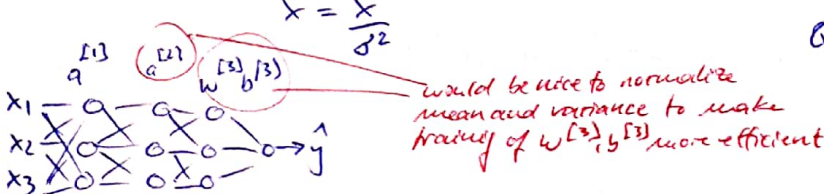 x = x / σ²
a^[1] a^[2] w^[3] b^[3]
would be nice to normalize
mean and variance to make
training of w^[3], b^[3] more efficient
x₁
x₂ ŷ
x₃